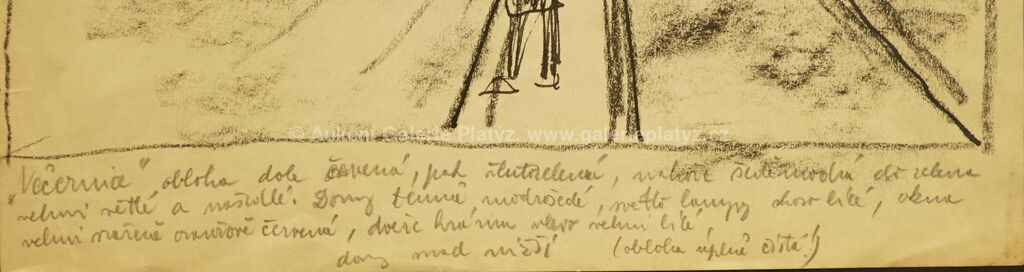 © Aukční Galerie Platýz, www.galerieplatyz.cz
"Večernice" obloha dole červená, pak žlutozelená, nahoře do zelena
velmi světlé a Domy temně modrošedé, světlo lampy skoro bílé, okna
velmi oranžově červená, dveře krámu vlevo velmi bílé,
domy nižší (obloha úplně čistá!)